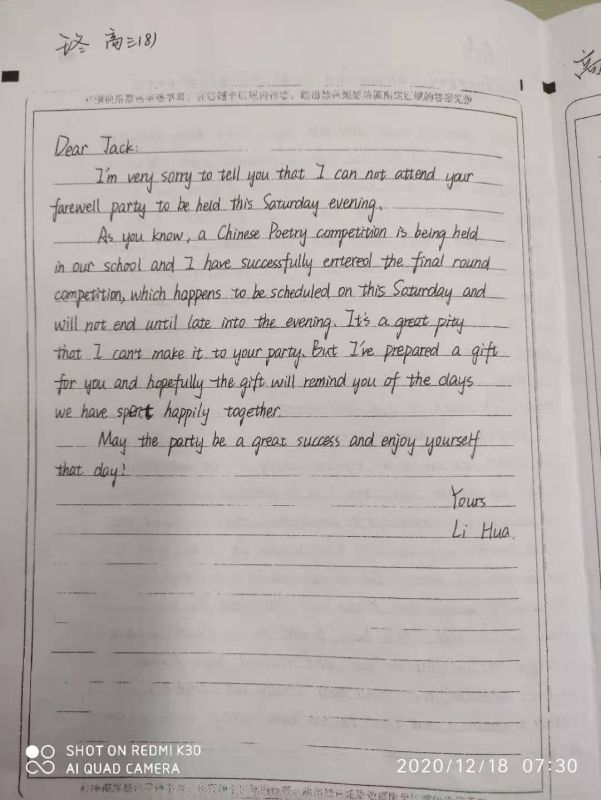 高三(8)
Dear Jack:
I'm very sorry to tell you that I can not attend your
farewell party to be held this Saturday evening.
As you know, a Chinese Poetry competition is being held
in our school and I have successfully entered the final round
competition, which happens to be scheduled on this Saturday and
will not end until late into the evening. It's a great pity
that I can't make it to your party. But I've prepared a gift
for you and hopefully the gift will remind you of the days
we have spent happily together.
May the party be a great success and enjoy yourself
that day!
Yours
Li Hua.
SHOT ON REDMI K30
AI QUAD CAMERA
2020/12/18 07:30